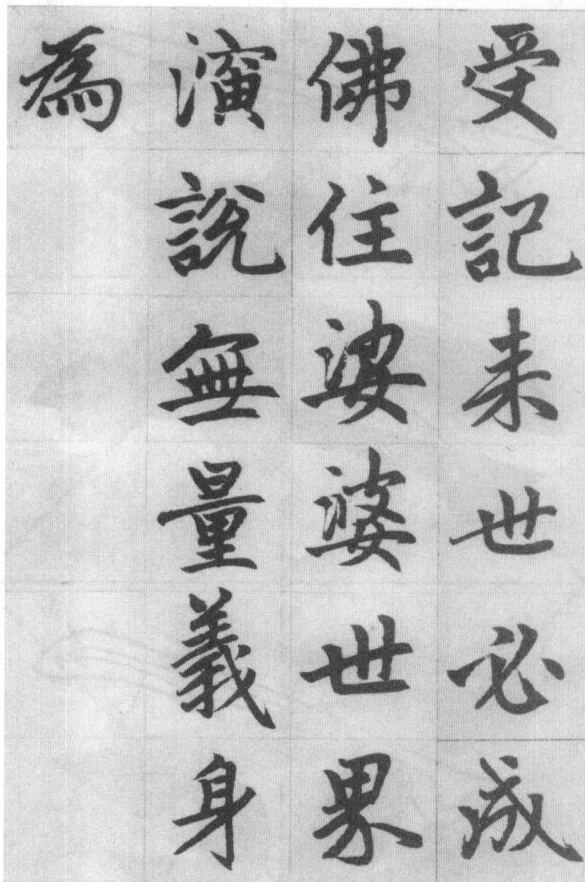 受記来世必成
佛住娑婆世界
演說無量義身
為